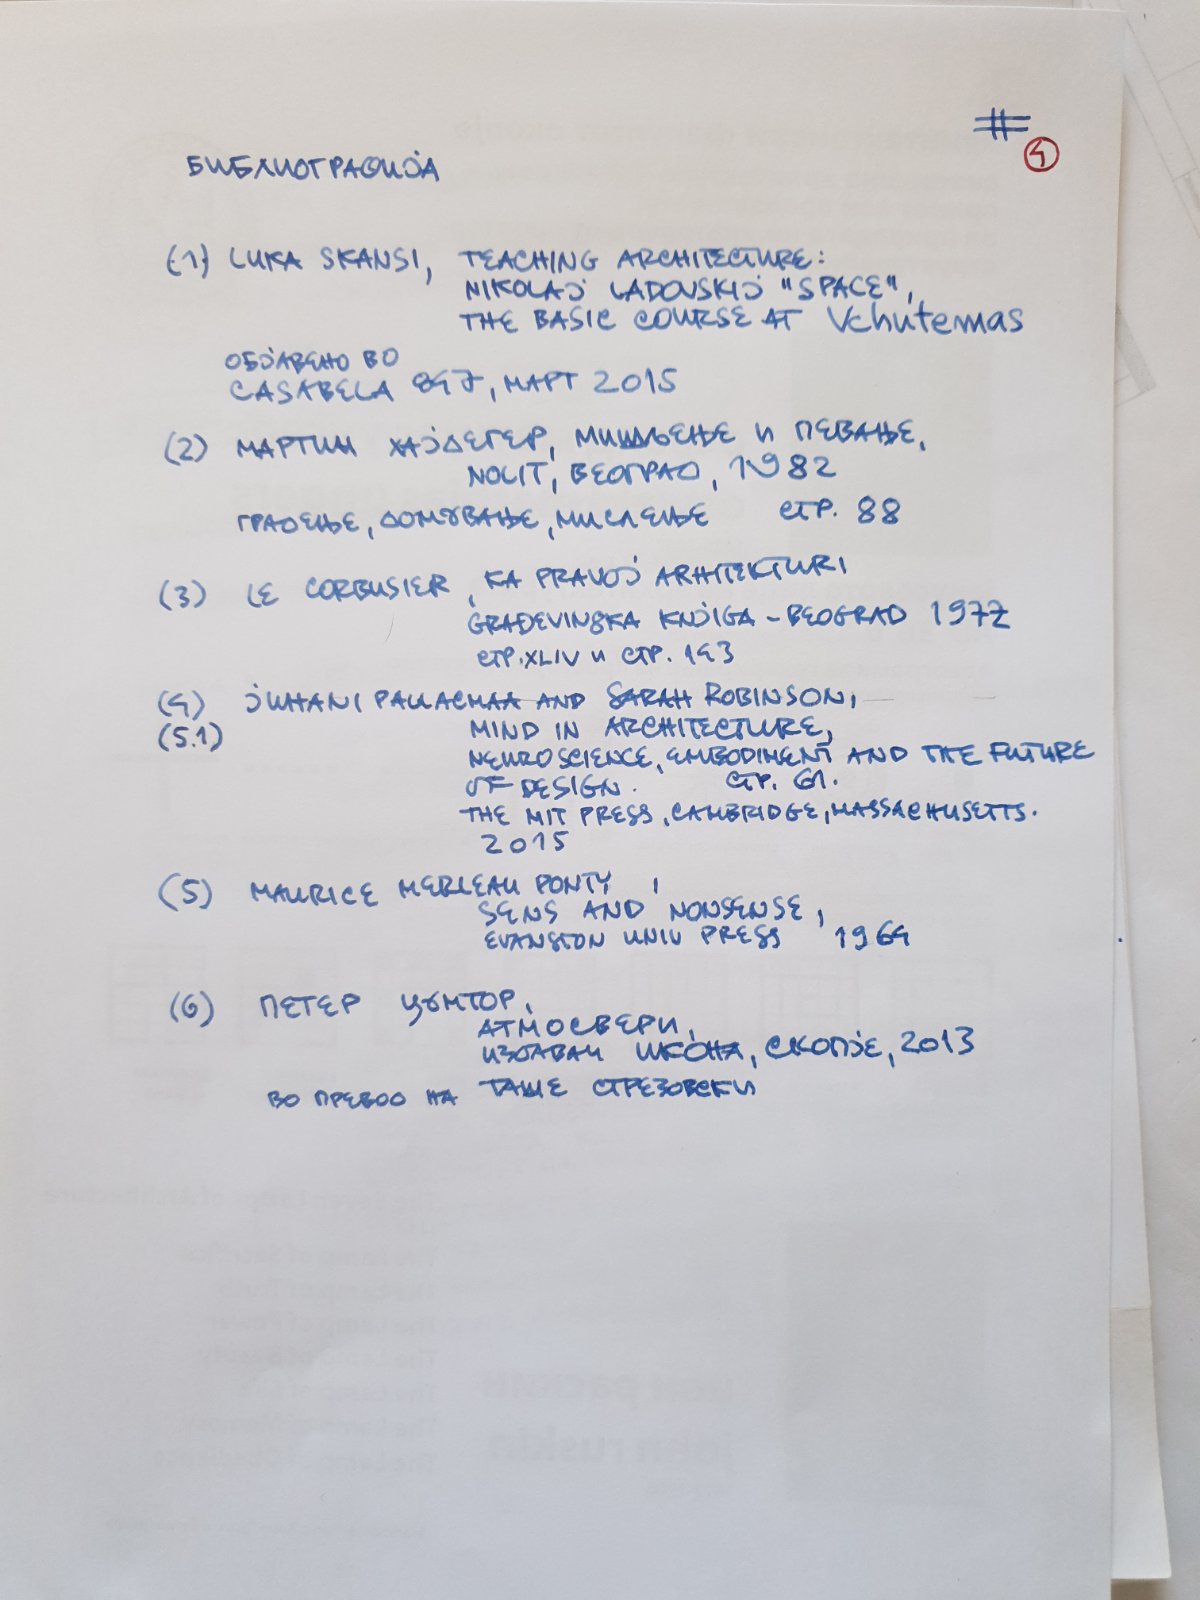 #
4
БИБЛИОГРАФИЈА
(1) LUKA SKANSI, TEACHING ARCHITECTURE:
NIKOLAJ LADOVSKIJ "SPACE",
THE BASIC COURSE AT Vchutemas
ОБЈАВЕНО ВО
CASABELA 847, МАРТ 2015
(2) МАРТИН ХАЈДЕГЕР, МИШЉЕЊЕ И ПЕВАЊЕ,
NOLIT, БЕОГРАД, 1982
ГРАДЕЊЕ, ДОМУВАЊЕ, МИСЛЕЊЕ СТР. 88
(3) LE CORBUSIER, KA PRAVOJ ARHITEKTURI
GRAĐEVINSKA KNJIGA - BEOGRAD 1977
СТР. XLIV И СТР. 193
(4) JUHANI PALLASMAA AND SARAH ROBINSON,
(5.1) MIND IN ARCHITECTURE,
NEUROSCIENCE, EMBODIMENT AND THE FUTURE
OF DESIGN. СТР. 61.
THE MIT PRESS, CAMBRIDGE, MASSACHUSETTS.
2015
(5) MAURICE MERLEAU PONTY,
SENS AND NONSENSE,
EVANSTON UNIV PRESS 1964
(6) ПЕТЕР ЦУМТОР,
АТМОСВЕРИ,
ИЗДАВАЧ ИКОНА, СКОПЈЕ, 2013
ВО ПРЕВОД НА ТАШЕ СТРЕЗОВСКИ